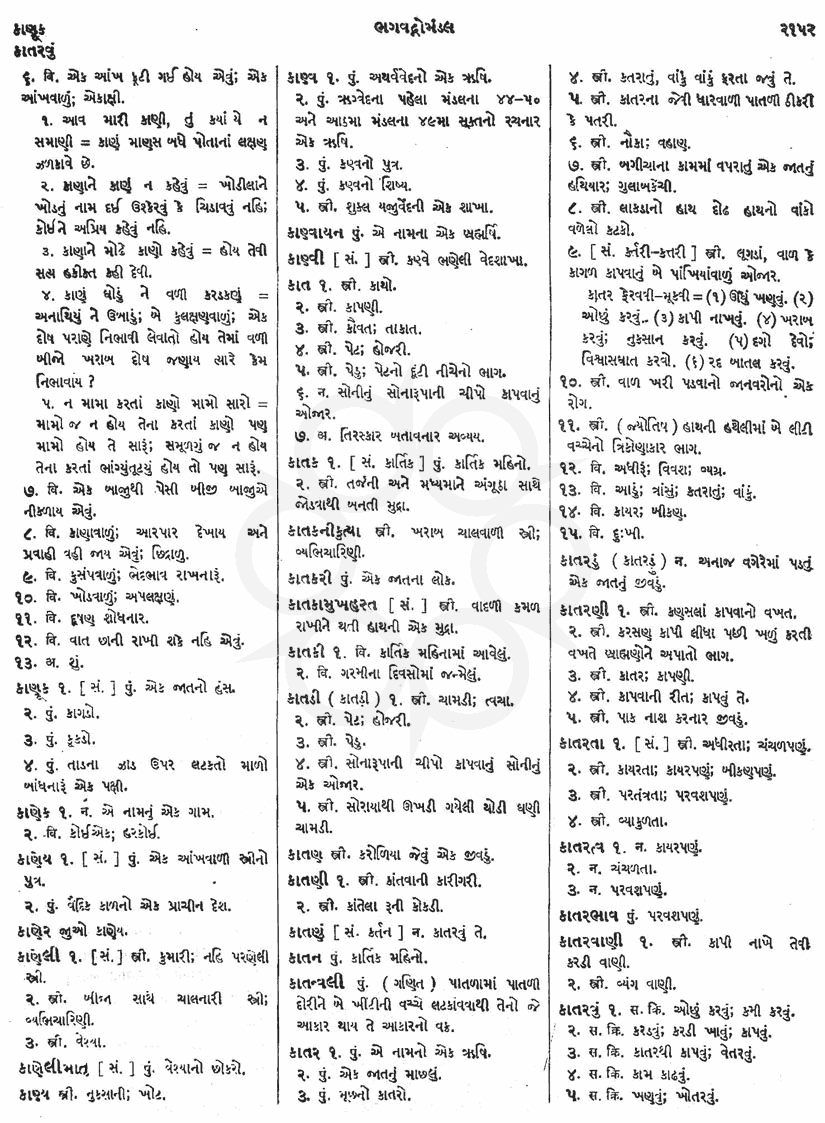 કાણૂક
કાતરવું
ભગવદ્ગોમંડલ
૨૧૫૨
૬. વિ. એક આંખ ફૂટી ગઈ હોય એવું; એક
આંખવાળું; એકાક્ષી.
૧. આવ મારી કાણી, તું કયાં યે ન
સમાણી = કાણું માણુસ બધે પોતાનાં લક્ષણ
ઝળકાવે છે.
૨. કાણાને કાણું ન કહેવું = ખોડીલાને
ખોડનું નામ દઈ ઉશ્કેરવું કે ચિડાવવું નહિ;
કોઈને અપ્રિય કહેવું નહિ.
૩. કાણાને મોઢે કાણો કહેવું = હોય તેવી
સત્ય હકીકત કહી દેવી.
૪. કાણું ઘોડું ને વળી કરડકણું =
અનાથિયું ને ઉબાડું; બે કુલક્ષણવાળું; એક
દોષ પરાણે નિભાવી લેવાતો હોય તેમાં વળી
બીજો ખરાબ દોષ જણાય ત્યારે કેમ
નિભાવાય ?
૫. ન મામા કરતાં કાણો મામો સારો =
મામો જ ન હોય તેના કરતાં કાણો પણ
મામો હોય તે સારું; સમૂળગું જ ન હોય
તેના કરતાં ભાંગ્યુંતૂટયું હોય તો પણ સારું.
૭. વિ. એક બાજુથી પેસી બીજી બાજુએ
નીકળાય એવું.
૮. વિ. કાણાવાળું; આરપાર દેખાય અને
પ્રવાહી વહી જાય એવું; છિદ્રાળુ.
૯. વિ. કુસંપવાળું; ભેદભાવ રાખનારું.
૧૦. વિ. ખોડવાળું; અપલક્ષણું.
૧૧. વિ. દૂષણ શોધનાર.
૧૨. વિ. વાત છાની રાખી શકે નહિ એવું.
૧૩. અ. શું.
કાણૂક ૧. [ સં. ] પું. એક જાતનો હંસ.
૨. પું. કાગડો.
૩. પું. કૂકડો.
૪. પું. તાડના ઝાડ ઉપર લટકતો માળો
બાંધનારું એક પક્ષી.
કાણેક ૧. ન. એ નામનું એક ગામ.
૨. વિ. કોઈએક; હરકોઈ.
કાણેય ૧. [ સં. ] પું. એક આંખવાળી સ્ત્રીનો
પુત્ર.
૨. પું. વૈદિક કાળનો એક પ્રાચીન દેશ.
કાણેર જુઓ કાણેય.
કાણેલી ૧. [સં.] સ્ત્રી. કુમારી; નહિ પરણેલી
સ્ત્રી.
૨. સ્ત્રી. બીજા સાથે ચાલનારી સ્ત્રી;
વ્યભિચારિણી.
૩. સ્ત્રી. વેશ્યા.
કાણેલીમાતૃ [ સં. ] પું. વેશ્યાનો છોકરો.
કાણ્ય સ્ત્રી. નુકસાની; ખોટ.
કાણ્વ ૧. પું. અથર્વવેદનો એક ઋષિ.
૨. પું. ઋગ્વેદના પહેલા મંડલના ૪૪-૫૦
અને આઠમા મંડલના ૪૯મા સૂક્તનો રચનાર
એક ઋષિ.
૩. પું. કણ્વનો પુત્ર.
૪. પું. કણ્વનો શિષ્ય.
૫. સ્ત્રી. શુક્લ યજુર્વેદની એક શાખા.
કાણ્વાયન પું. એ નામના એક બ્રહ્મર્ષિ.
કાણ્વી [ સં. ] સ્ત્રી. કણ્વે ભણેલી વેદશાખા.
કાત ૧. સ્ત્રી. કાથો.
૨. સ્ત્રી. કાપણી.
૩. સ્ત્રી. કૌવત; તાકાત.
૪. સ્ત્રી. પેટ; હોજરી.
૫. સ્ત્રી. પેડુ; પેટનો દૂંટી નીચેનો ભાગ.
૬. ન. સોનીનું સોનારૂપાની ચીપો કાપવાનું
ઓજાર.
૭. અ. તિરસ્કાર બતાવનાર અવ્યય.
કાતક ૧. [ સં. કાર્તિક ] પું. કાર્તિક મહિનો.
૨. સ્ત્રી. તર્જની અને મધ્યમાને અંગૂઠા સાથે
જોડવાથી બનતી મુદ્રા.
કાતકનીકુત્યા સ્ત્રી. ખરાબ ચાલવાળી સ્ત્રી;
વ્યભિચારિણી.
કાતકરી પું. એક જાતના લોક.
કાતકામુખહસ્ત [ સં. ] સ્ત્રી. વાદળી કમળ
રાખીને થતી હાથની એક મુદ્રા.
કાતકી ૧. વિ. કાર્તિક મહિનામાં આવેલું.
૨. વિ. ગરમીના દિવસોમાં જન્મેલું.
કાતડી ( કાતડ઼ી ) ૧. સ્ત્રી. ચામડી; ત્વચા.
૨. સ્ત્રી. પેટ; હોજરી.
૩. સ્ત્રી. પેડુ.
૪. સ્ત્રી. સોનારૂપાની ચીપો કાપવાનું સોનીનું
એક ઓજાર.
૫. સ્ત્રી. સોરાયાથી ઊખડી ગયેલી થોડી ઘણી
ચામડી.
કાતણ સ્ત્રી. કરોળિયા જેવું એક જીવડું.
કાતણી ૧. સ્ત્રી. કાંતવાની કારીગરી.
૨. સ્ત્રી. કાંતેલા રૂની કોકડી.
કાતણું [ સં. કર્તન ] ન. કાતરવું તે.
કાતન પું. કાર્તિક મહિનો.
કાતન્વલી પું. ( ગણિત ) પાતળામાં પાતળી
દોરીને બે ખીંટીની વચ્ચે લટકાવવાથી તેનો જે
આકાર થાય તે આકારનો વક્ર.
કાતર ૧. પું. એ નામનો એક ઋષિ.
૨. પું. એક જાતનું માછલું.
૩. પું. મૂછનો કાતરો.
૪. સ્ત્રી. કતરાતું, વાંકું વાંકું ફરતા જવું તે.
૫. સ્ત્રી. કાતરના જેવી ધારવાળી પાતળી ઠીકરી
કે પતરી.
૬. સ્ત્રી. નૌકા; વહાણ.
૭. સ્ત્રી. બગીચાના કામમાં વપરાતું એક જાતનું
હથિયાર; ગુલાબકેંચી.
૮. સ્ત્રી. લાકડાનો હાથ દોઢ હાથનો વાંકો
વળેલો કટકો.
૯. [ સં. કર્તરી-કત્તરી ] સ્ત્રી. લૂગડાં, વાળ કે
કાગળ કાપવાનું બે પાંખિયાંવાળું ઓજાર.
કાતર ફેરવવી-મૂકવી = (૧) ઊંધું ખણવું. (૨)
ઓછું કરવું. (૩) કાપી નાખવું. (૪) ખરાબ
કરવું; નુકસાન કરવું. (૫) દગો દેવો;
વિશ્વાસઘાત કરવો. (૬) રદ બાતલ કરવું.
૧૦. સ્ત્રી. વાળ ખરી પડવાનો જાનવરોનો એક
રોગ.
૧૧. સ્ત્રી. ( જ્યોતિષ ) હાથની હથેલીમાં બે લીટી
વચ્ચેનો ત્રિકોણાકાર ભાગ.
૧૨. વિ. અધીરું; વિવશ; વ્યગ્ર.
૧૩. વિ. આડું; ત્રાંસું; કતરાતું; વાંકું.
૧૪. વિ. કાયર; બીકણ.
૧૫. વિ. દુઃખી.
કાતરડું ( કાતરડ઼ું ) ન. અનાજ વગેરેમાં પડતું
એક જાતનું જીવડું.
કાતરણી ૧. સ્ત્રી. કણસલાં કાપવાનો વખત.
૨. સ્ત્રી. કરસણ કાપી લીધા પછી ખળું કરતી
વખતે બ્રાહ્મણોને અપાતો ભાગ.
૩. સ્ત્રી. કાતર; કાપણી.
૪. સ્ત્રી. કાપવાની રીત; કાપવું તે.
૫. સ્ત્રી. પાક નાશ કરનાર જીવડું.
કાતરતા ૧. [ સં. ] સ્ત્રી. અધીરતા; ચંચળપણું.
૨. સ્ત્રી. કાયરતા; કાયરપણું; બીકણપણું.
૩. સ્ત્રી. પરતંત્રતા; પરવશપણું.
૪. સ્ત્રી. વ્યાકુળતા.
કાતરત્વ ૧. ન. કાયરપણું.
૨. ન. ચંચળતા.
૩. ન. પરવશપણું.
કાતરભાવ પું. પરવશપણું.
કાતરવાણી ૧. સ્ત્રી. કાપી નાખે તેવી
કરડી વાણી.
૨. સ્ત્રી. વ્યંગ વાણી.
કાતરવું ૧. સ. ક્રિ. ઓછું કરવું; કમી કરવું.
૨. સ. ક્રિ. કરડવું; કરડી ખાવું; કાપવું.
૩. સ. ક્રિ. કાતરથી કાપવું; વેતરવું.
૪. સ. ક્રિ. કામ કાઢવું.
૫. સ. ક્રિ. ખણવું; ખોતરવું.